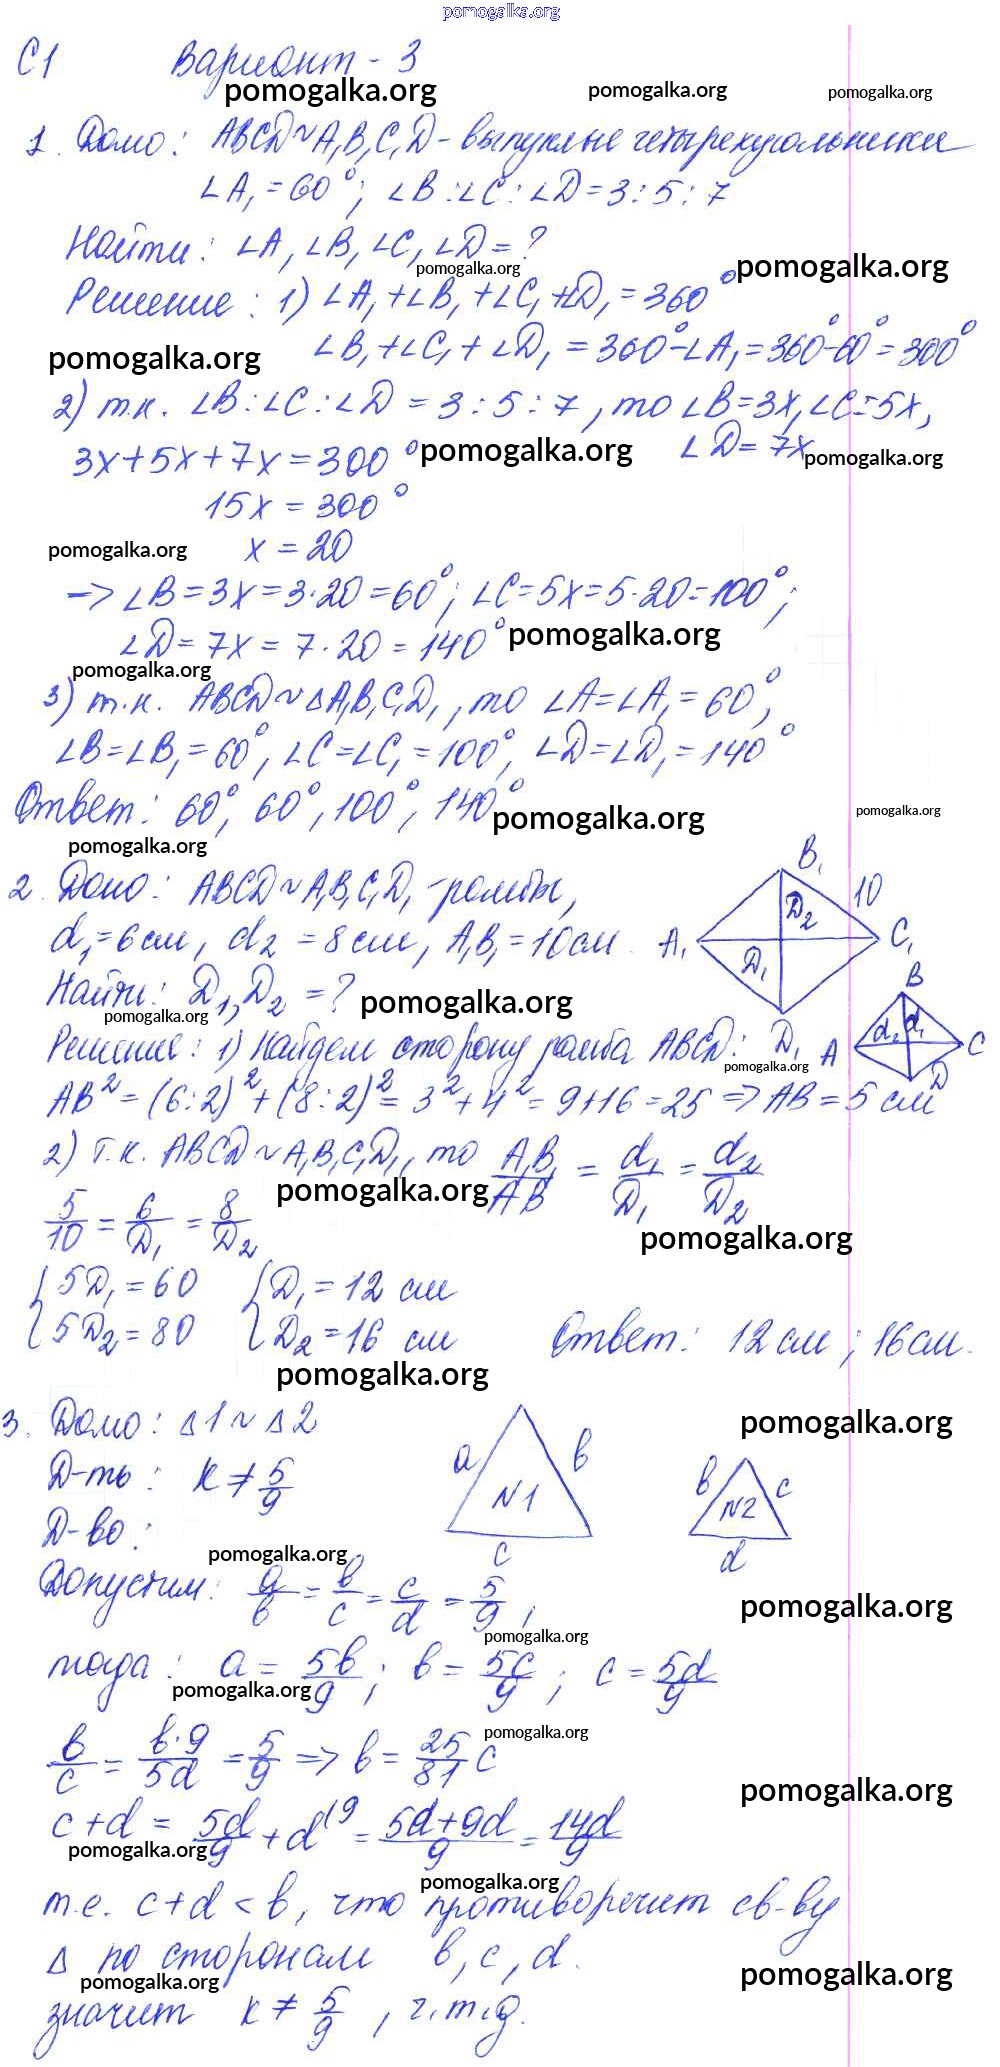 pomogalka.org
С1 Вариант - 3
pomogalka.org pomogalka.org pomogalka.org
1. Дано: ABCD ~ A₁B₁C₁D - выпуклые четырехугольники
∠A₁ = 60°; ∠B : ∠C : ∠D = 3 : 5 : 7
Найти: ∠A, ∠B, ∠C, ∠D = ?
pomogalka.org pomogalka.org
Решение: 1) ∠A₁ + ∠B₁ + ∠C₁ + ∠D₁ = 360°
∠B₁ + ∠C₁ + ∠D₁ = 360° - ∠A₁ = 360° - 60° = 300°
pomogalka.org
2) т.к. ∠B : ∠C : ∠D = 3 : 5 : 7, то ∠B = 3x, ∠C = 5x,
∠D = 7x
3x + 5x + 7x = 300° pomogalka.org pomogalka.org
15x = 300°
x = 20
pomogalka.org
-> ∠B = 3x = 3·20 = 60°; ∠C = 5x = 5·20 = 100°;
∠D = 7x = 7·20 = 140° pomogalka.org
pomogalka.org
3) т.к. ABCD ~ ΔA₁B₁C₁D₁, то ∠A = ∠A₁ = 60°,
∠B = ∠B₁ = 60°, ∠C = ∠C₁ = 100°, ∠D = ∠D₁ = 140°
Ответ: 60°, 60°, 100°, 140° pomogalka.org pomogalka.org
pomogalka.org
2. Дано: ABCD ~ A₁B₁C₁D₁ - ромбы,
d₁ = 6 см, d₂ = 8 см, A₁B₁ = 10 см.
B₁ 10
D₂
A₁ C₁
D₁
Найти: D₁, D₂ = ? pomogalka.org
pomogalka.org
B
d₂ d₁
A C
D
D₁
Решение: 1) Найдем сторону ромба ABCD:
pomogalka.org
AB² = (6:2)² + (8:2)² = 3² + 4² = 9 + 16 = 25 => AB = 5 см
2) Т.к. ABCD ~ A₁B₁C₁D₁, то A₁B₁/AB = d₁/D₁ = d₂/D₂
pomogalka.org
5/10 = 6/D₁ = 8/D₂
pomogalka.org
{ 5D₁ = 60 { D₁ = 12 см
5D₂ = 80 D₂ = 16 см Ответ: 12 см; 16 см.
pomogalka.org
3. Дано: Δ1 ~ Δ2
pomogalka.org
Д-ть: k ≠ 5/9
a в
N1
c
в c
N2
d
Д-во:
pomogalka.org
Допустим: a/в = в/c = c/d = 5/9;
pomogalka.org
pomogalka.org
тогда: a = 5в/9; в = 5c/9; c = 5d/9
pomogalka.org
pomogalka.org
в/c = в·9/5d = 5/9 => в = 25/81 c
pomogalka.org
c + d = 5d/9 + d⁽⁹ = 5d+9d/9 = 14d/9
pomogalka.org
pomogalka.org
т.е. c + d < в, что противоречит св-ву
Δ по сторонам в, c, d.
pomogalka.org pomogalka.org
значит k ≠ 5/9, ч.т.д.